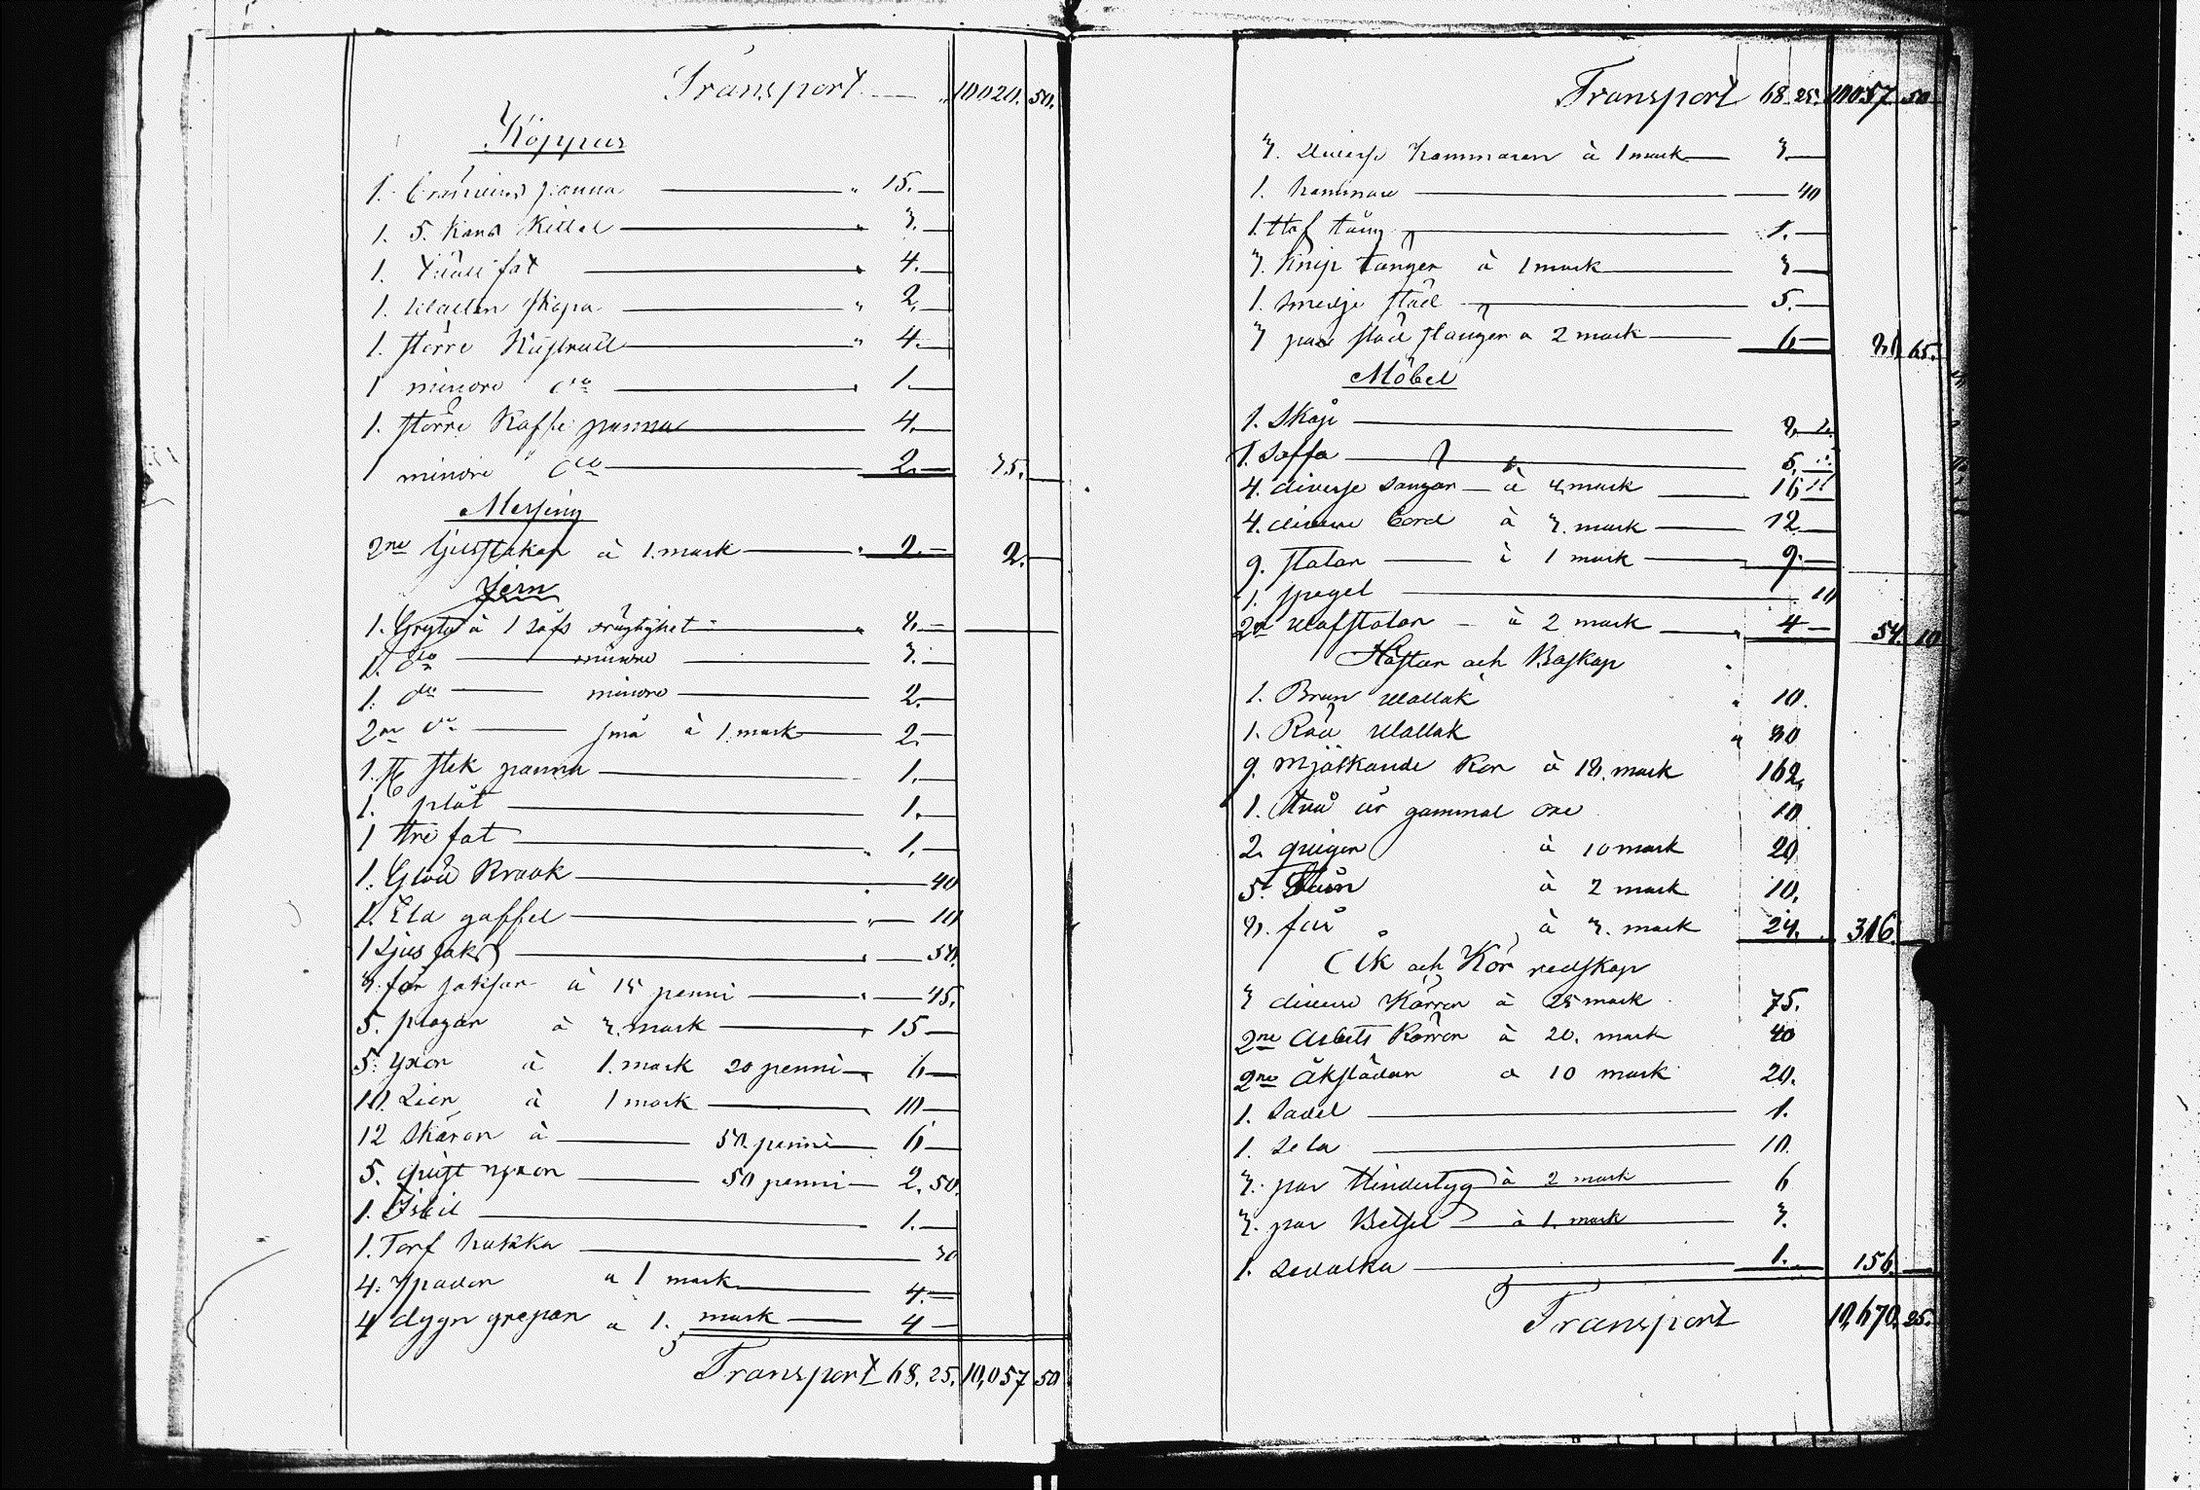 Transport — " 10020. 50.
Koppar
1. Bränvins panna — " 15. —
1. 5. Kans Kittel — " 3. —
1. fat — " 4. —
1. skopa — " 2. —
1. större Kastrull — " 4. —
1 mindre d:o — " 1. —
1. större Kaffe panna — 4. —
1 mindre d:o — 2. — 35. —
Messing
2ne ljusstakar à 1. mark — " 2. — 2. —
Jern
1. Gryta à 1 såfs — " 8. —
1. d:o — mindre — 3. —
1. d:o — mindre — 2. —
2ne d:o — små à 1. mark — 2. —
1. stek panna — 1. —
1. plåt — 1. —
1 tre fat — 1. —
1. Glöd Kraak — 40
1. Eld gaffel — " — 10
1 Ljus sax — " — 50.
3. får saksar à 15 penni — " — 45.
5. plogar à 3. mark — " 15 —
5. yxor à 1. mark 20 penni — 6 —
10. Lier à 1 mark — 10 —
12 Skäror à — 50. penni — 6 —
5. — 50 penni — 2. 50.
1. Isbil — 1. —
1. Torf hakka — 30
4. spadar a 1 mark — 4. —
4 dygn grepar a 1. mark — 4 —
Transport 68. 25. 10,057 50
Transport 68. 25. 10057 50
3. diverse hammaren à 1 mark — 3. —
1. hammare — 40
1. Hof tång — 1. —
3. Knip tänger à 1 mark — 3 —
1. smedje städ — 5. —
3 par städ stänger a 2 mark — 6 — 81 65.
Möbel
1. Skåp — 8. —
1. Soffa — 5. —
4. diverse sängar — à 4 mark — 16
4. diverse bord à 3. mark — 12 —
9. stolar — à 1 mark — 9. —
1. spegel — 10
2ne stolar — à 2 mark — 4 — 54. 10
Hästar och Boskap
1. Brun wallak " 10.
1. Röd wallak " 80
9. mjölkande Kor à 18. mark 162.
1. två år gammal oxe 10
2. quigor à 10 mark 20
5. à 2 mark 10.
8. får à 3. mark 24. 316. —
Åk och Kör redskap
3 diverse Kärror à 25 mark 75.
2ne Arbets Kärror à 20. mark 40
2ne Åkslädar a 10 mark 20.
1. Sadel — 1.
1. Sela — 10.
3. par Hindertyg à 2 mark — 6
3. par Betsel — à 1. mark — 3.
1. Sedolka — 1. — 156. —
Transport 10,670. 25.